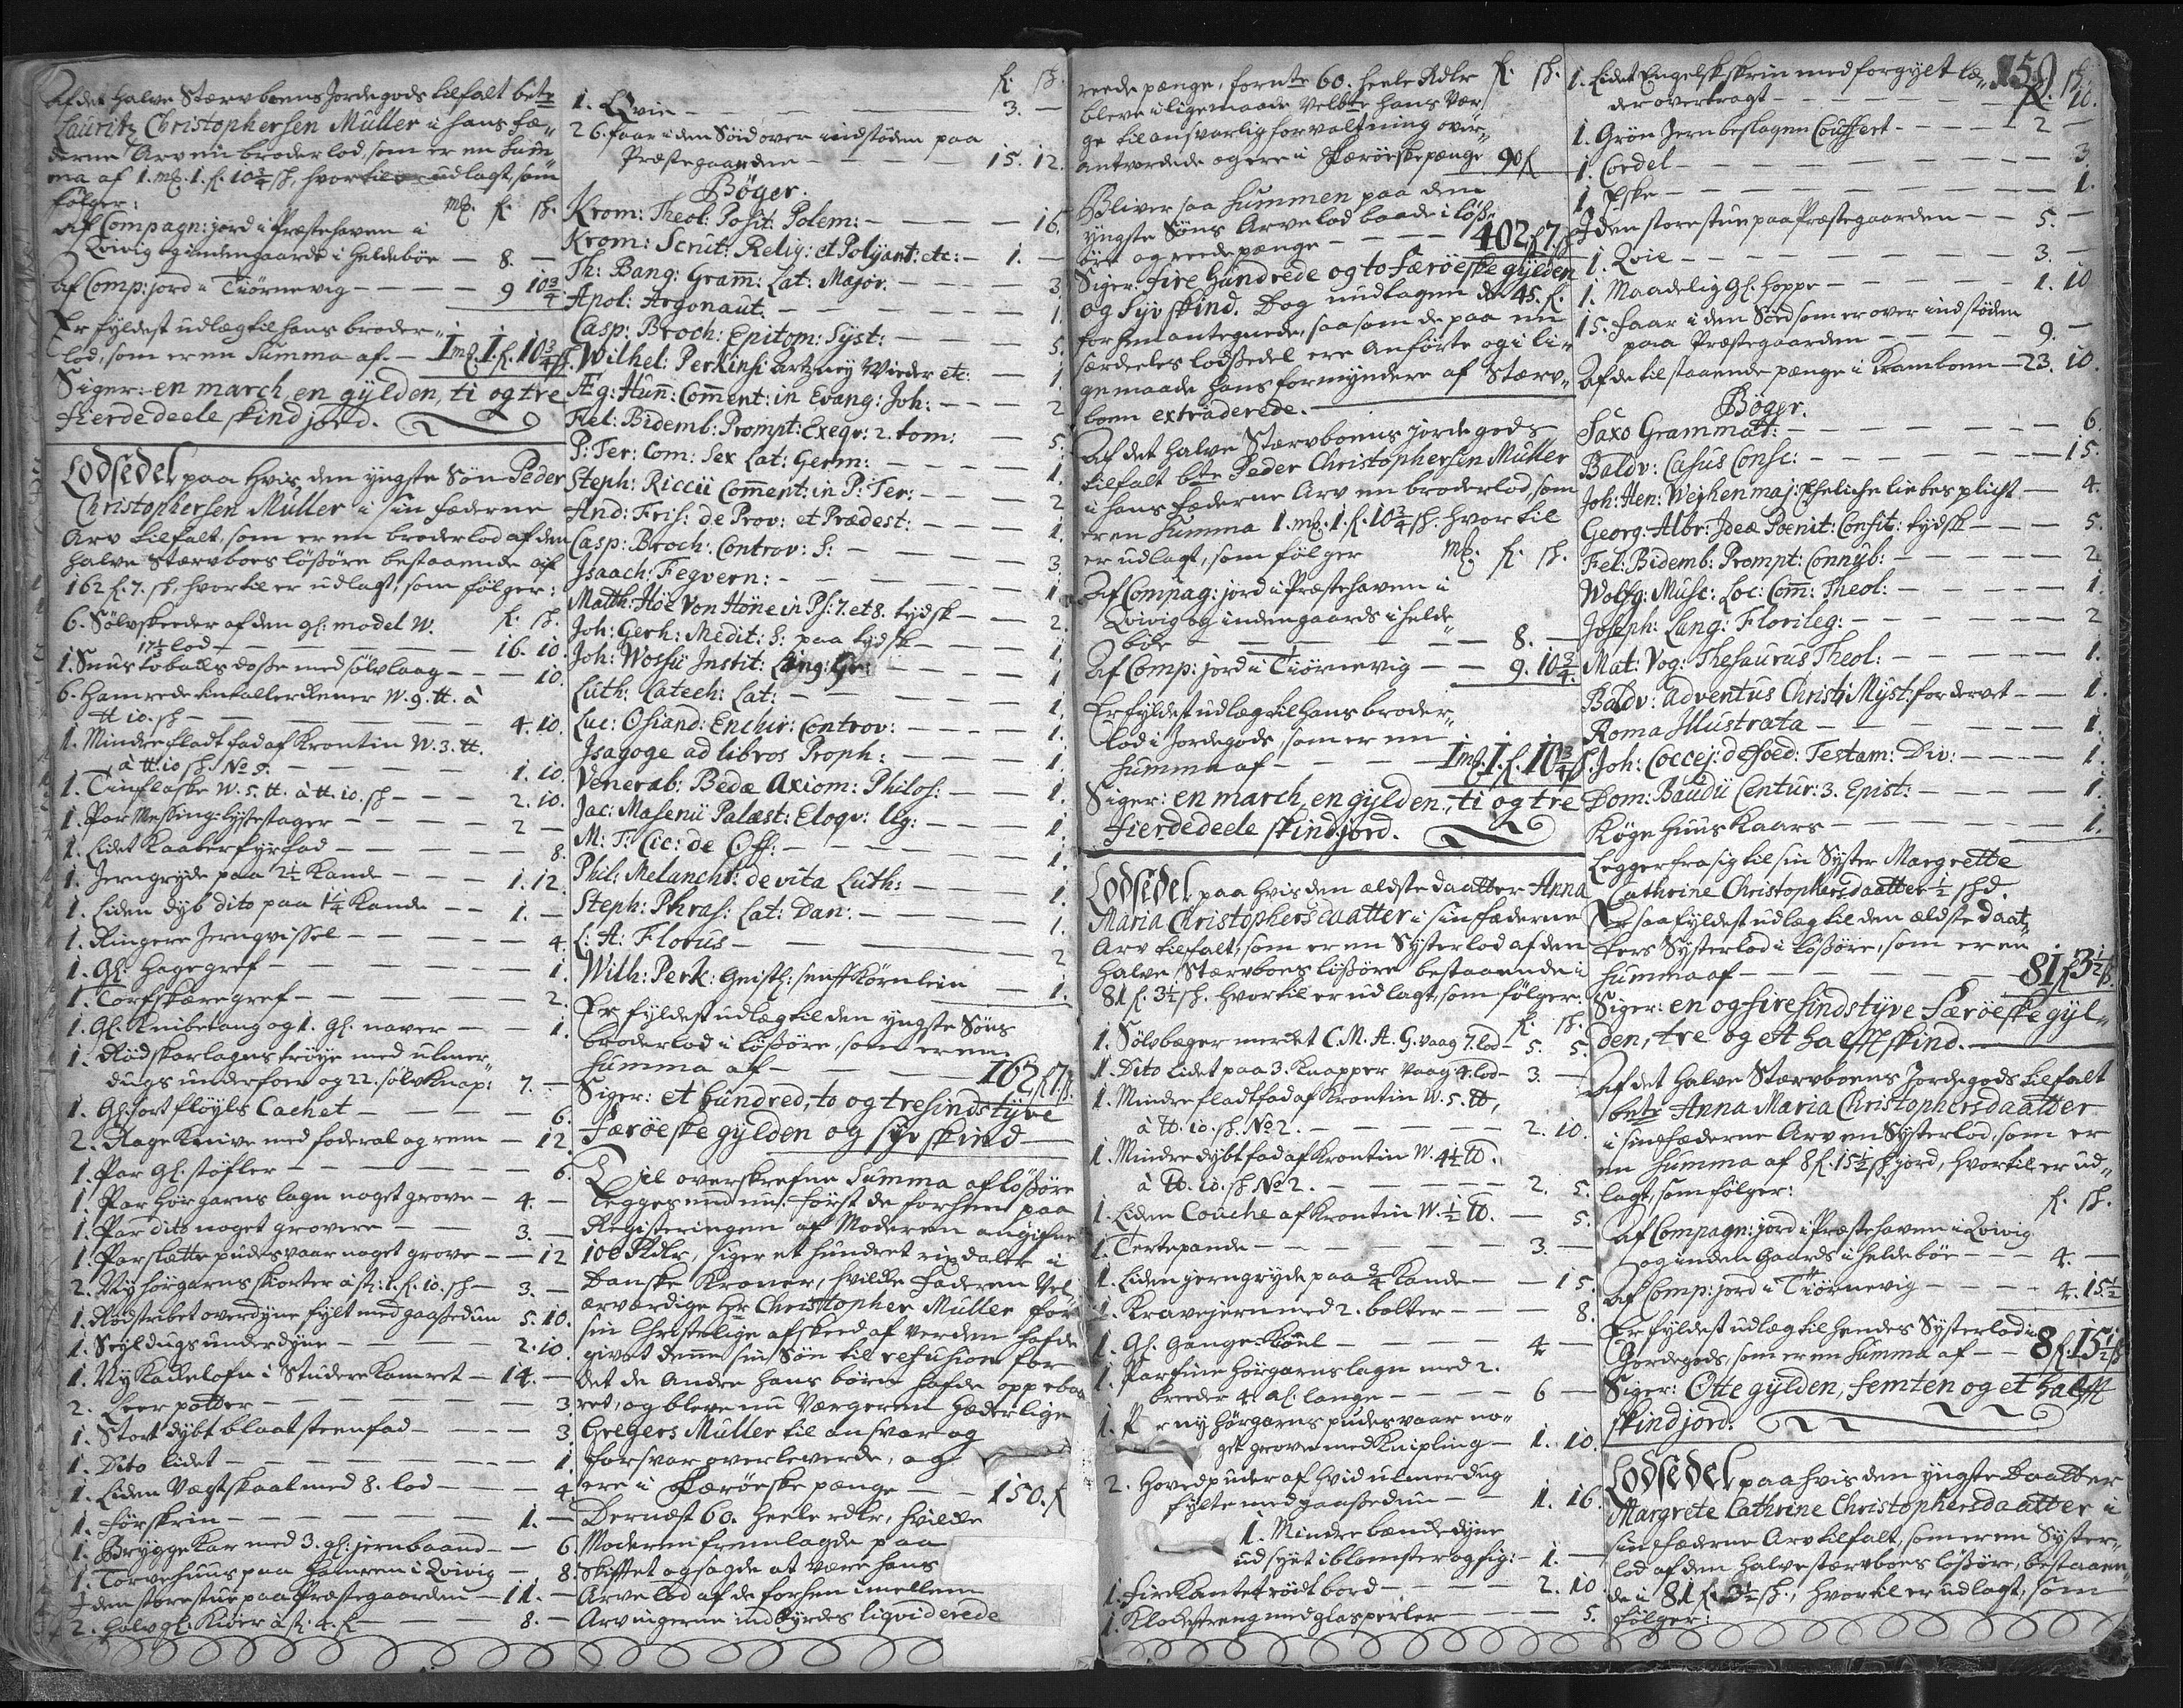 Af det halve Stærvboens Jordegods tilfalt bete
Lauritz Christophersen Müller i hans fæ„
derne Arv en broderlod, som er en Sum„
ma af 1. m&. 1. f. 10¾ sh, hvortil udlagt, som
følger: m&. f. sh.
Af Compagn: jord i Præstehaven i
Qvivig og indengaards i Heldebøe — 8. —
Af Comp: jord i Tiørnevig — 9 10¾
Er fyldest udlæg til hans broder„
lod, som er en Summa af — 1 m&. 1. f. 10¾ sh.
Siger: en march, en gylden, ti og tre
fierdedeele skind jord.
Lodsedel paa hvis den yngste Søn Peder
Christophersen Müller i sin fæderne
Arv tilfalt, som er en broderlod af den
halve Stærvboes løßøre bestaaende af
162 f. 7. sh. hvortil er udlagt, som følger:
6. Sølvskeeder af den gl: model W. f. sh.
17⅓ lod — 16. 10.
1. Snustobacks dosse med sølvlaag — 10.
6. Hamrede tintallerkener W. 9. tt. à
tt 10. sh — 4. 10.
1. Mindre fladt fad af Krontin W. 3. tt.
à tt. 10 sh. No 9. — 1. 10.
1. Tinflaske W. 5. tt. à tt. 10. sh — 2. 10.
1. Par Messing: lysestager — 2 —
1. Lidet Kaaberfyrfad — 8.
1. Jerngryde paa 2½ Kande — 1. 12.
1. Liden dyb dito paa 1¼ Kande — 1. —
1. Ringere Jerngrissel — 4.
1. Gl: hagegref — 1.
1. Torfskæregref — 2.
1. Gl. Knibetang og 1. gl. naver — 1.
1. Rød skarlagens trøye med ulmer„
dugs underfoer og 22. sølv Knap: 7. —
1. Gl: sort fløyels Cachet — 6.
2. Rage Knive med foderal og rem — 12.
1. Par gl. støfler — 6.
1. Par hørgarns lagen noget grove — 4. —
1. Par dito noget grovere — 3. —
1. Par slætte pudesvaar noget grove — 12
2. Ny hørgarns skiorter à st. 1. f. 10. sh — 3. —
1. Rødstribet overdyne fylt med gaaßedun 5. 10.
1. Seyldugs underdyne — 2. 10
1. Ny Kackelofn i Studere Kamret — 14. —
2. Leer potter — 3.
1. Stort dybt blaat steenfad — 3
1. Dito lidet — 1.
1. Liden Vægtskaal med 8. lod — 4.
1. Førskrin — 1. —
1. Bryggekar med 3. gl: jernbaand — 6.
1. Torvehuus paa Hameren i Qvivig — 8.
I den storestue paa Præstegaarden — 11. —
2. halv gl. Kiøer à st. 4. f — 8. —
f. sh.
1. Qvie — 3. —
26. faar i den Søid over indstøden paa
Præstegaarden — 15. 12.
Bøger.
Krom: Theol: Posit: Polem: — 16.
Krom: Scrut: Relig: et Polyant: etc: — 1. —
Th: Bang: Gram̄: Lat: Major. — 3.
Apol: Argonaut. — 1.
Casp: Broch: Epitom: Syst: — 5.
Wilhel: Perkinsi artzney Wieder etc: — 1.
Æg: Hun̄: Com̄ent: in Evang: Joh: — 2
Fel: Bidemb: Prompt: Exeqv: 2. tom: — 5.
P: Ter: Com: Sex Lat: Germ: — 1.
Steph: Riccii Com̄ent: in P: Ter: — 2
And: Fris: de Prov: et Prædest: — 1.
Casp: Broch: Controv: S: — 3
Isaach: Fegvern: — 1.
Matth: Höe Von Höne in Ps: 7. et 8. tydsk — 2.
Joh: Gerh: Medit: S: paa tydsk — 1.
Joh: Wossii Instit: Ling: Gr: — 1
Luth: Catech: Lat: — 1.
Luc: Osiand: Enchir: Controv: — 1.
Isagoge ad libros Proph: — 1.
Venerab: Bedæ Axiom: Philos: — 1.
Jac: Masenii Palæst: Eloqv: lig: — 1.
M: T: Cic: de Off: — 1.
Phil: Melancht: de vita Luth: — 1.
Steph: Phras: Lat: Dan: — 1.
L: A: Florus — 2
Wilh: Perk: Geistl: senff Körnlein — 1.
Er fyldest udlæg til den yngste Søns
broderlod i løßøre, som er en
Summa af — 162 f 7 sh.
Siger: et hundred, to og tresindstyve
Færøeske gylden og syv skind —
Til overskrefne Summa af løßøre
legges end nu: først de forhen paa
Registeringen af Moderen angifne
100 Rdlr, siger et hundret rixdaler i
Danske Kroner, hvilke Faderen Vel„
ærværdige Hr Christopher Müller for
sin Christelige afskeed af verden hafde
givet denne sin Søn til refusion for
det de Andre hans børn hafde oppebaa
ret, og bleve nu Værgeren Hæderlige
Gregers Müller til ansvar og
forsvar overleverde, og
ere i Færøeske penge — 150. f
Dernest 60. heele rdlr, hvilke
Moderen fremlagde paa
Skiftet og sagde at være hans
Arvelod af de forhen imellem
Arvingerne indbyrdes liqviderede
159
reede pænge, fornte 60. heele Rdlr f. sh.
bleve i ligemaade Velbte hans Vær„
ge til ansvarlig forvaltning over„
antvordede og ere i Færøeskepænge 90 f
Bliver saa Summen paa den
yngste Søns Arvelod baade i løß„
øre og reede pænge — 402 f 7. sh
Siger: fire hundrede og to Færøeske gylden
og Syv skind. Dog undtagen de 45. f.
forhen antegnede, saasom de paa en
særdeeles lodßedel ere Anførte og i li„
gemaade hans formyndere af Stærv„
boen extraderede.
Af det halve Stærvboens jordegods
tilfalt bte Peder Christophersen Müller
i hans fæderne Arv en broderlod, som
er en Summa 1. m&. 1. f. 10¾ sh. hvortil
er udlagt, som følger m&. f. sh.
Af Compag: jord i Præstehaven i
Qvivig og indengaards i Helde„
bøe — 8. —
Af Comp: jord i Tiørnevig — 9. 10¾.
Er fyldest udlæg til hans broder„
lod i Jordegods, som er en
Summa af — 1 m&. 1. f. 10¾ sh.
Siger: en march, en gylden, ti og tre
fierdedeele skind jord.
Lodsedel paa hvis den ældste daatter Anna
Maria Christophersdaatter i sin fæderne
Arv tilfalt, som er en Systerlod af den
halve Stærvboes løßøre bestaaende i
81 f. 3½ sh. hvortil er udlagt, som følger.
f. sh.
1. Sølvbæger merket C. M. A. G. vaag 7. lod — 5. 5.
1. Dito lidet paa 3. Knapper vaag 4. lod — 3. —
1. Mindre fladt fad af Krontin W. 5. tt,
à tt. 10. sh. No 2. — 2. 10.
1. Mindre dybt fad af Krontin W. 4½ tt.
à tt. 10. sh. No 2. — 2. 5.
1. Liden Couche af Krontin W. ½ tt. — 5.
1. Tertepande — 3. —
1. Liden jerngryde paa ¾ Kande — 15.
1. Kravejern med 2. bolter — 8.
1. Gl. Gange-Kiøel — 4 —
1. Par fine hørgarns lagen med 2.
breeder 4. al. lange — 6 —
1. P r ny hørgarns pudesvaar no„
get grove med Knipling — 1. 10.
2. Hovedpuder af hvid ulmerdug
fylte med gaaßedun — 1. 16.
1. Mindre bænkedyne
udsyet i blomster og fig: — 1. —
1. firekantet rødt bord — 2. 10.
1. Klokkestreng med glasperler — 5.
1. Lidet Engelsk skrin med forgylt læ„ f. sh.
der overtragt — 10.
1. Grøn Jernbeslagen Couffert — 2 —
1. Cordel — 3.
1. Eske — 1.
I den storestue paa Præstegaarden — 5. —
1. Qvie — 3. —
1. Maadelig gl. hoppe — 1. 10
15. Faar i den Søed som er over indstøden
paa Præstegaarden — 9. —
Af de tilstaaende pænge i Kramboen — 23. 10.
Bøger.
Saxo Grammat: — 6.
Baldv: Casus Consc: — 15.
Joh: Hen: Weyhenmaj: Eheliche liebes plicht — 4.
Georg: Albr: Ideæ Poenit: Consit: tydsk — 5.
Fel: Bidemb: Prompt: Connub: — 2
Wolfg: Musc: Loc: Com̄: Theol: — 1.
Joseph: Lang: Florileg: — 2
Mat: Vog: Thesaurus Theol: — 1.
Baldv: adventus Christi Myst: fordervet — 1.
Roma Illustrata — 1.
Joh: Coccej: de foed: Testam: Div: — 1.
Dom: Baudii Centur: 3. Epist: — 1.
Køge Huus Kaars — 1.
Legger fra sig til sin Syster Margrette
Cathrine Christophersdaatter ½ sh d.
Er saa fyldest udlæg til den ældste daat„
ters Systerlod i løßøre, som er en
Summa af — 81 f 3½ sh.
Siger: en og firesindstyve Færøeske gyl„
den, tre og et halfft skind. —
Af det halve Stærvboens Jordegods tilfalt
bete Anna Maria Christophersdaatter
i sin fæderne Arv en Systerlod, som er
en Summa af 8 f. 15½ sh. jord, hvortil er ud„
lagt, som følger: f. sh.
Af Compagn: jord i Præstehaven i Qvivig
og inden Gaards i Heldebøe — 4. —
Af Comp: jord i Tiørnevig — 4. 15½
Er fyldest udlæg til hendes Systerlod i
Jordegods, som er en Summa af — 8 f. 15½ sh
Siger: Otte gylden, femten og et halfft
skind jord.
Lodsedel paa hvis den yngste Daatter
Margrete Cathrine Christophersdaatter i
sin fæderne Arv tilfalt, som er en Syster„
lod af den halve stærvboes løßøre, bestaaen„
de i 81 f. 3½ sh., hvortil er udlagt, som
følger: